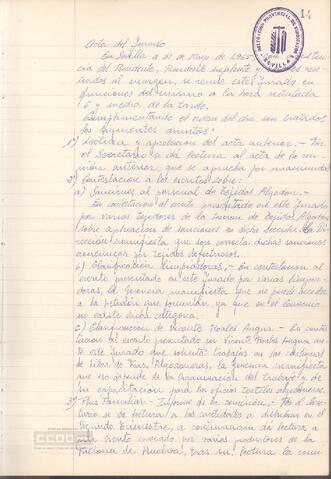 14
Acta del Jurado
En Sevilla a 31 de Marzo de 1965, con asisten-
cia del Presidente, Presidente suplente y vocales rese-
ñados al margen, se reune este Jurado en
funciones del mismo a la hora señalada
6 y media de la tarde.
Cumplimentando el orden del dia son tratados
los siguientes asuntos:
1º) Lectura y aprobacion del acta anterior.- Por
el Secretario se dá lectura al acta de la reu-
nion anterior que se aprueba por unanimidad
2º) Contestacion a los escritos sobre:
a) Sanciones al personal de Tejidos Algodon.-
En contestacion al escrito presentado en este Jurado
por varios tejedores de la Seccion de Tejidos Algodon
sobre aplicacion de sanciones en dicha seccion la Di-
reccion manifiesta que son correctas dichas sanciones
economicas por tejidos defectuosos.
b) Clasificacion Limpiadoras.- En contestacion al
escrito presentado a este Jurado por varias limpia-
doras, la gerencia manifiesta que no puede acceder
a la peticion que formulan, ya que en el Convenio
no existe dicha categoria.
c) Clasificacion de Vicente Rosales Angua.- En contes-
tacion al escrito presentado por Vicente Rosales Angua, an-
te este Jurado que solicita trabajar en las maquinas
de hilar de la gerencia manifiesta
que no depende de la organizacion del trabajo y de
su capacitacion para los oficios textiles algodoneros.
3º) Plus Familiar.- Informe de la comision.- Por el Secre-
tario se dá lectura a las cantidades a distribuir en el
Segundo trimestre, a continuacion dá lectura a
un escrito enviado por varios productores de la
Factoria de Huelva, tras su lectura la comi-